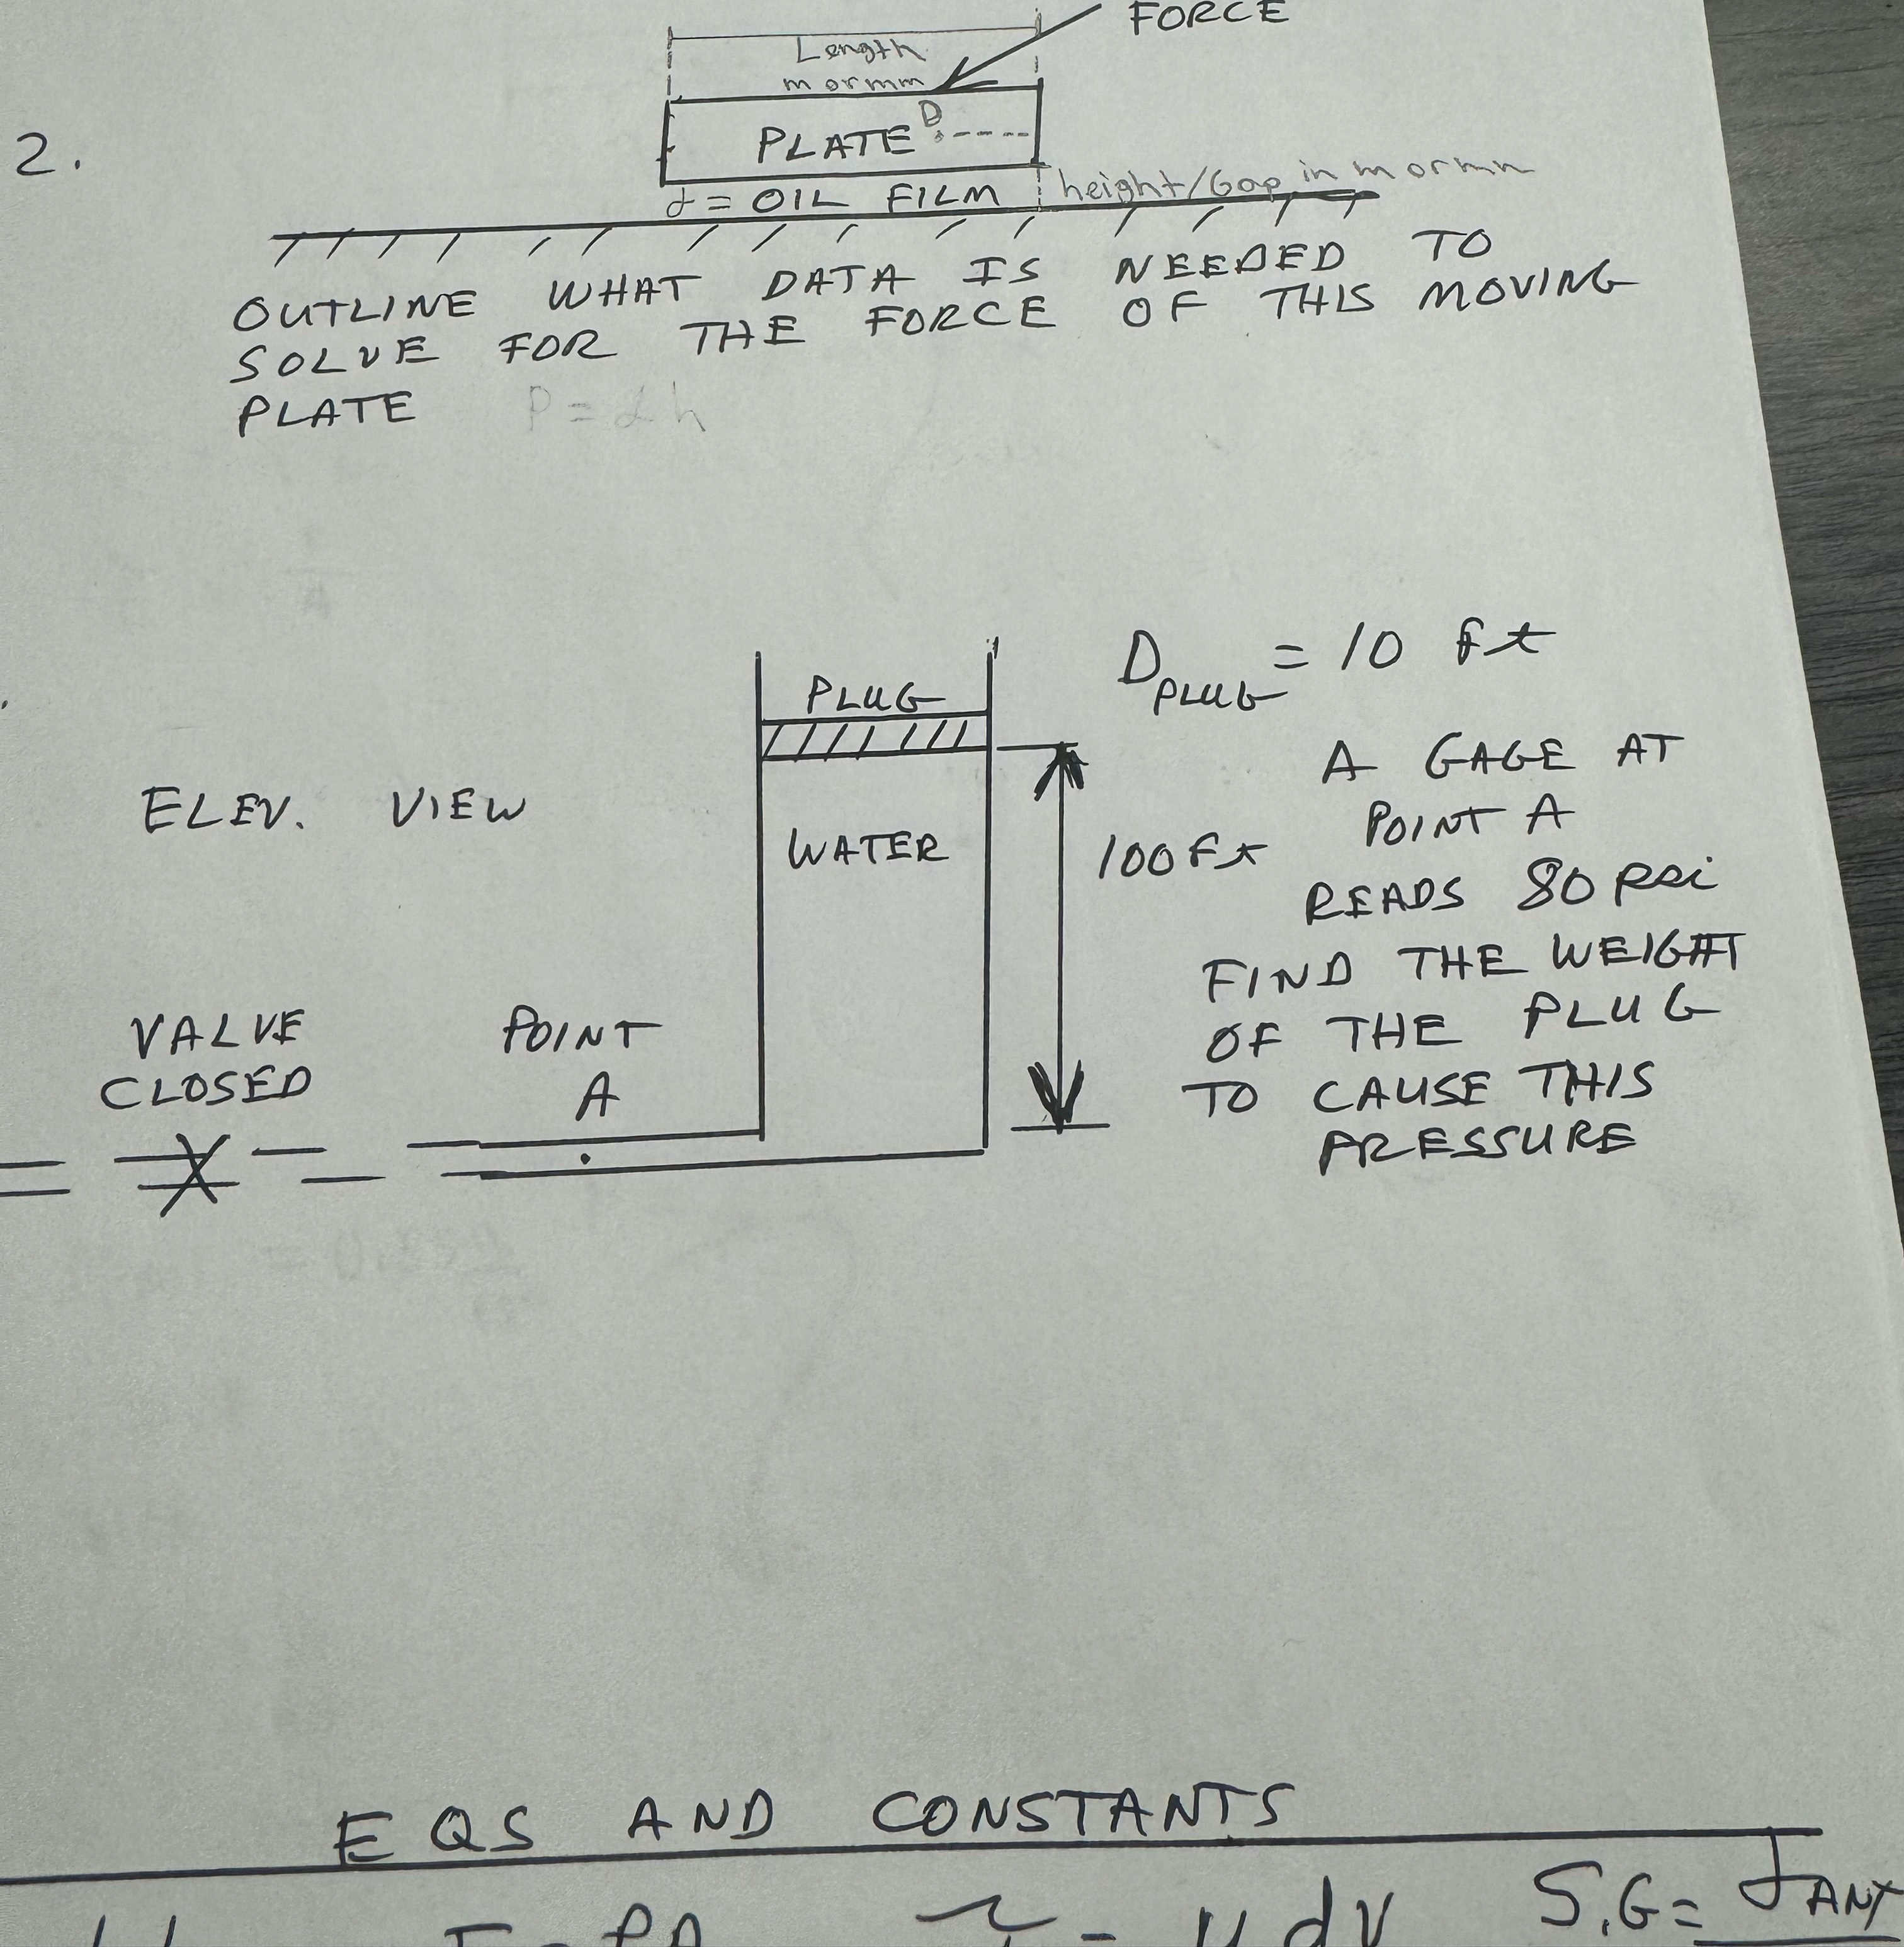 FORCE
Length
m or mm
2.
PLATE D
α = OIL FILM height/Gap in m or mm
OUTLINE WHAT DATA IS NEEDED TO
SOLVE FOR THE FORCE OF THIS MOVING
PLATE P = αh
D PLUG = 10 ft
PLUG
A GAGE AT
POINT A
ELEV. VIEW
WATER
100 ft
READS 80 psi
FIND THE WEIGHT
OF THE PLUG
TO CAUSE THIS
PRESSURE
VALVE
CLOSED
POINT
A
EQS AND CONSTANTS
PA
τ = μ dV
S.G =